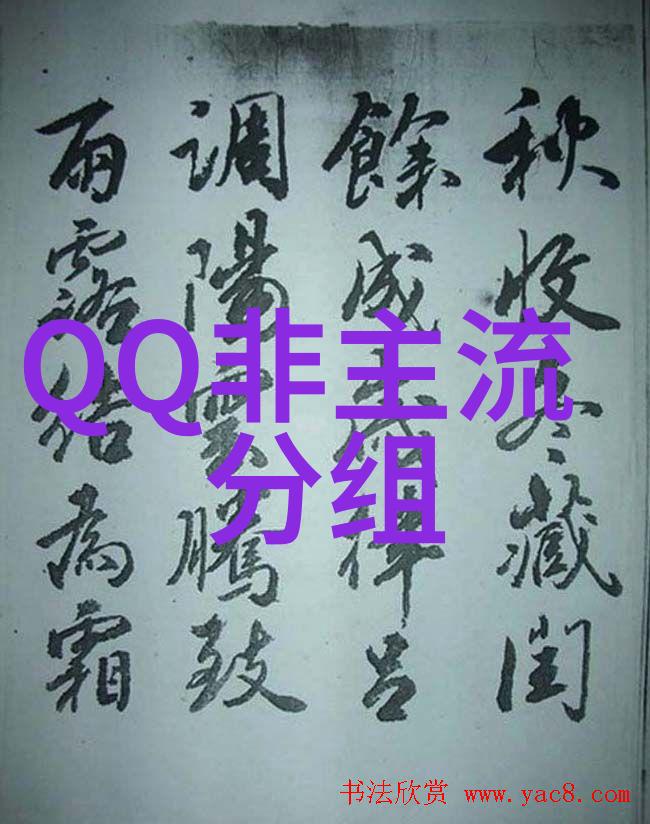 秋收冬藏閏
餘成歲律呂
調陽雲騰致
雨露結為霜
QQ非主流
分组
书法欣赏 www.yac8.com